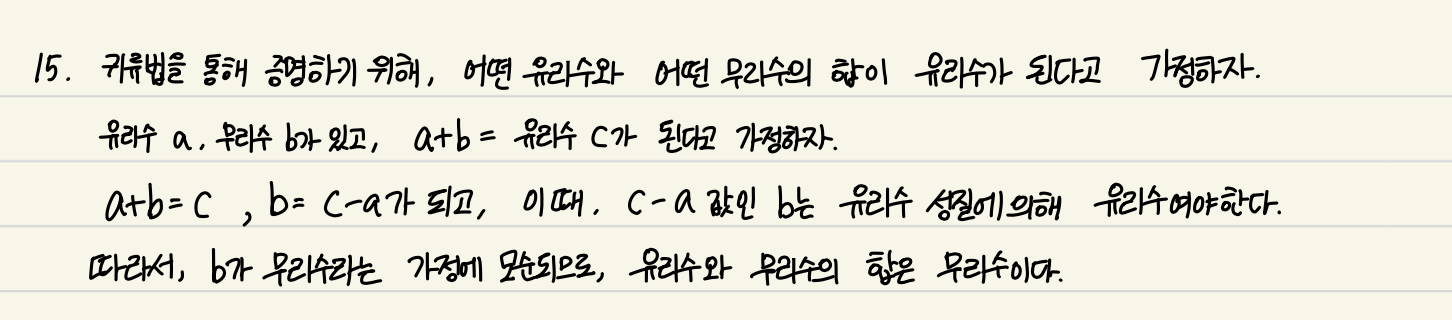 15. 귀류법을 통해 증명하기 위해, 어떤 유리수와 어떤 무리수의 합이 유리수가 된다고 가정하자.
유리수 a, 무리수 b가 있고, a+b = 유리수 c가 된다고 가정하자.
a+b=c , b= c-a가 되고, 이때, c-a 값인 b는 유리수 성질에 의해 유리수여야한다.
따라서, b가 무리수라는 가정에 모순되므로, 유리수와 무리수의 합은 무리수이다.